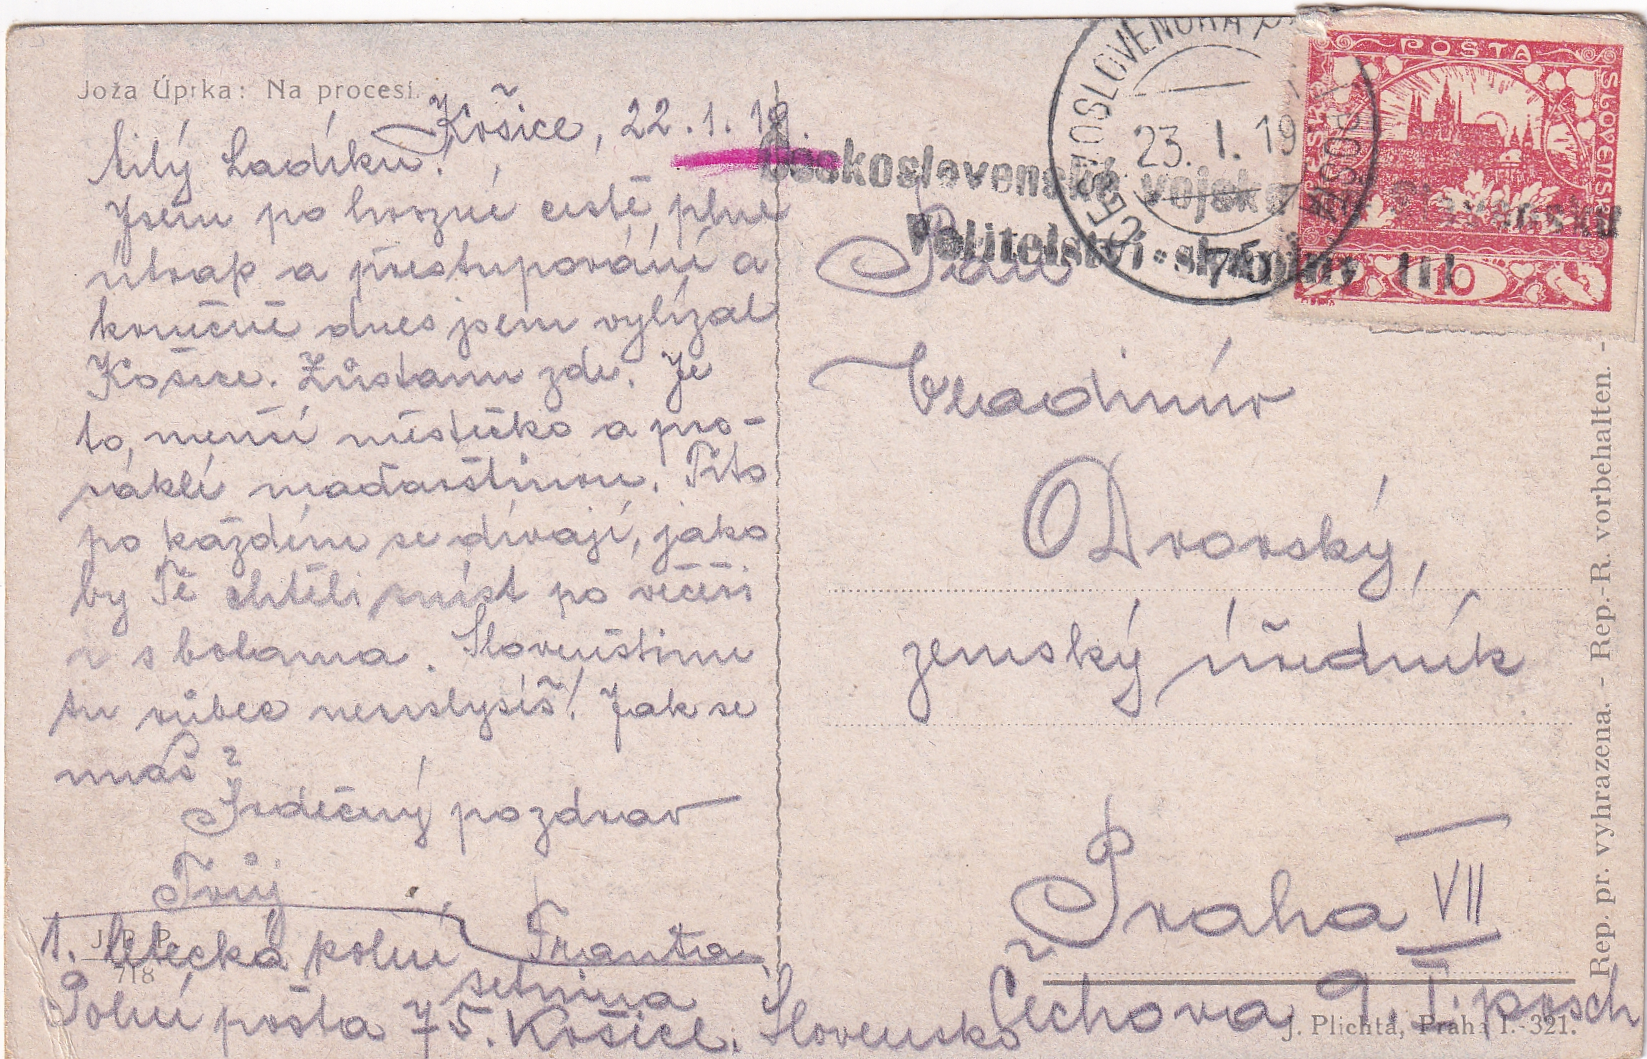 Joža Úprka: Na procesí.
Košice, 22.1.19.
Milý Ladíku!
Jsem po hrozné cestě plné
útrap a přestupování a
konečně dnes jsem vylízal
Košice. Zůstanu zde. Je
to menší městečko a pro-
sáklé maďarštinou. Tito
po každém se dívají, jako
by Tě chtěli sníst po večeři
i s botama. Slovenštinu
tu vůbec neuslyšíš! Jak se
máš?
Srdečný pozdrav
Tvůj
Franta
1. letecká polní
setnina
Polní pošta 75. Košice. Slovensko
J. P. P.
718
Československé vojsko na Slovensku
Velitelství skupiny III
ČESKOSLOVENSKÁ
23. I. 19
75
POŠTA
ČESKO
SLOVENSKÁ
10
Pan
Vladimír
Dvorský,
zemský úředník
Praha VII
Čechova 9. I. posch
J. Plichta, Praha I.-321.
Rep. pr. vyhrazena. - Rep.-R. vorbehalten. -